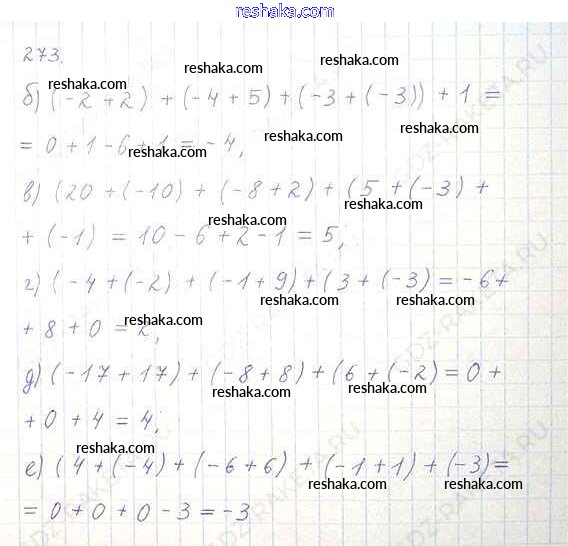 reshaka.com
273.
reshaka.com reshaka.com reshaka.com
б) (-2 + 2) + (-4 + 5) + (-3 + (-3)) + 1 =
reshaka.com reshaka.com
= 0 + 1 - 6 + 1 = -4,
reshaka.com
в) (20 + (-10) + (-8 + 2) + (5 + (-3) +
reshaka.com
reshaka.com
+ (-1) = 10 - 6 + 2 - 1 = 5;
г) (-4 + (-2) + (-1 + 9) + (3 + (-3) = -6 +
reshaka.com reshaka.com
reshaka.com
+ 8 + 0 = 2,
д) (-17 + 17) + (-8 + 8) + (6 + (-2) = 0 +
reshaka.com reshaka.com
+ 0 + 4 = 4;
reshaka.com
е) (4 + (-4) + (-6 + 6) + (-1 + 1) + (-3) =
reshaka.com reshaka.com
= 0 + 0 + 0 - 3 = -3